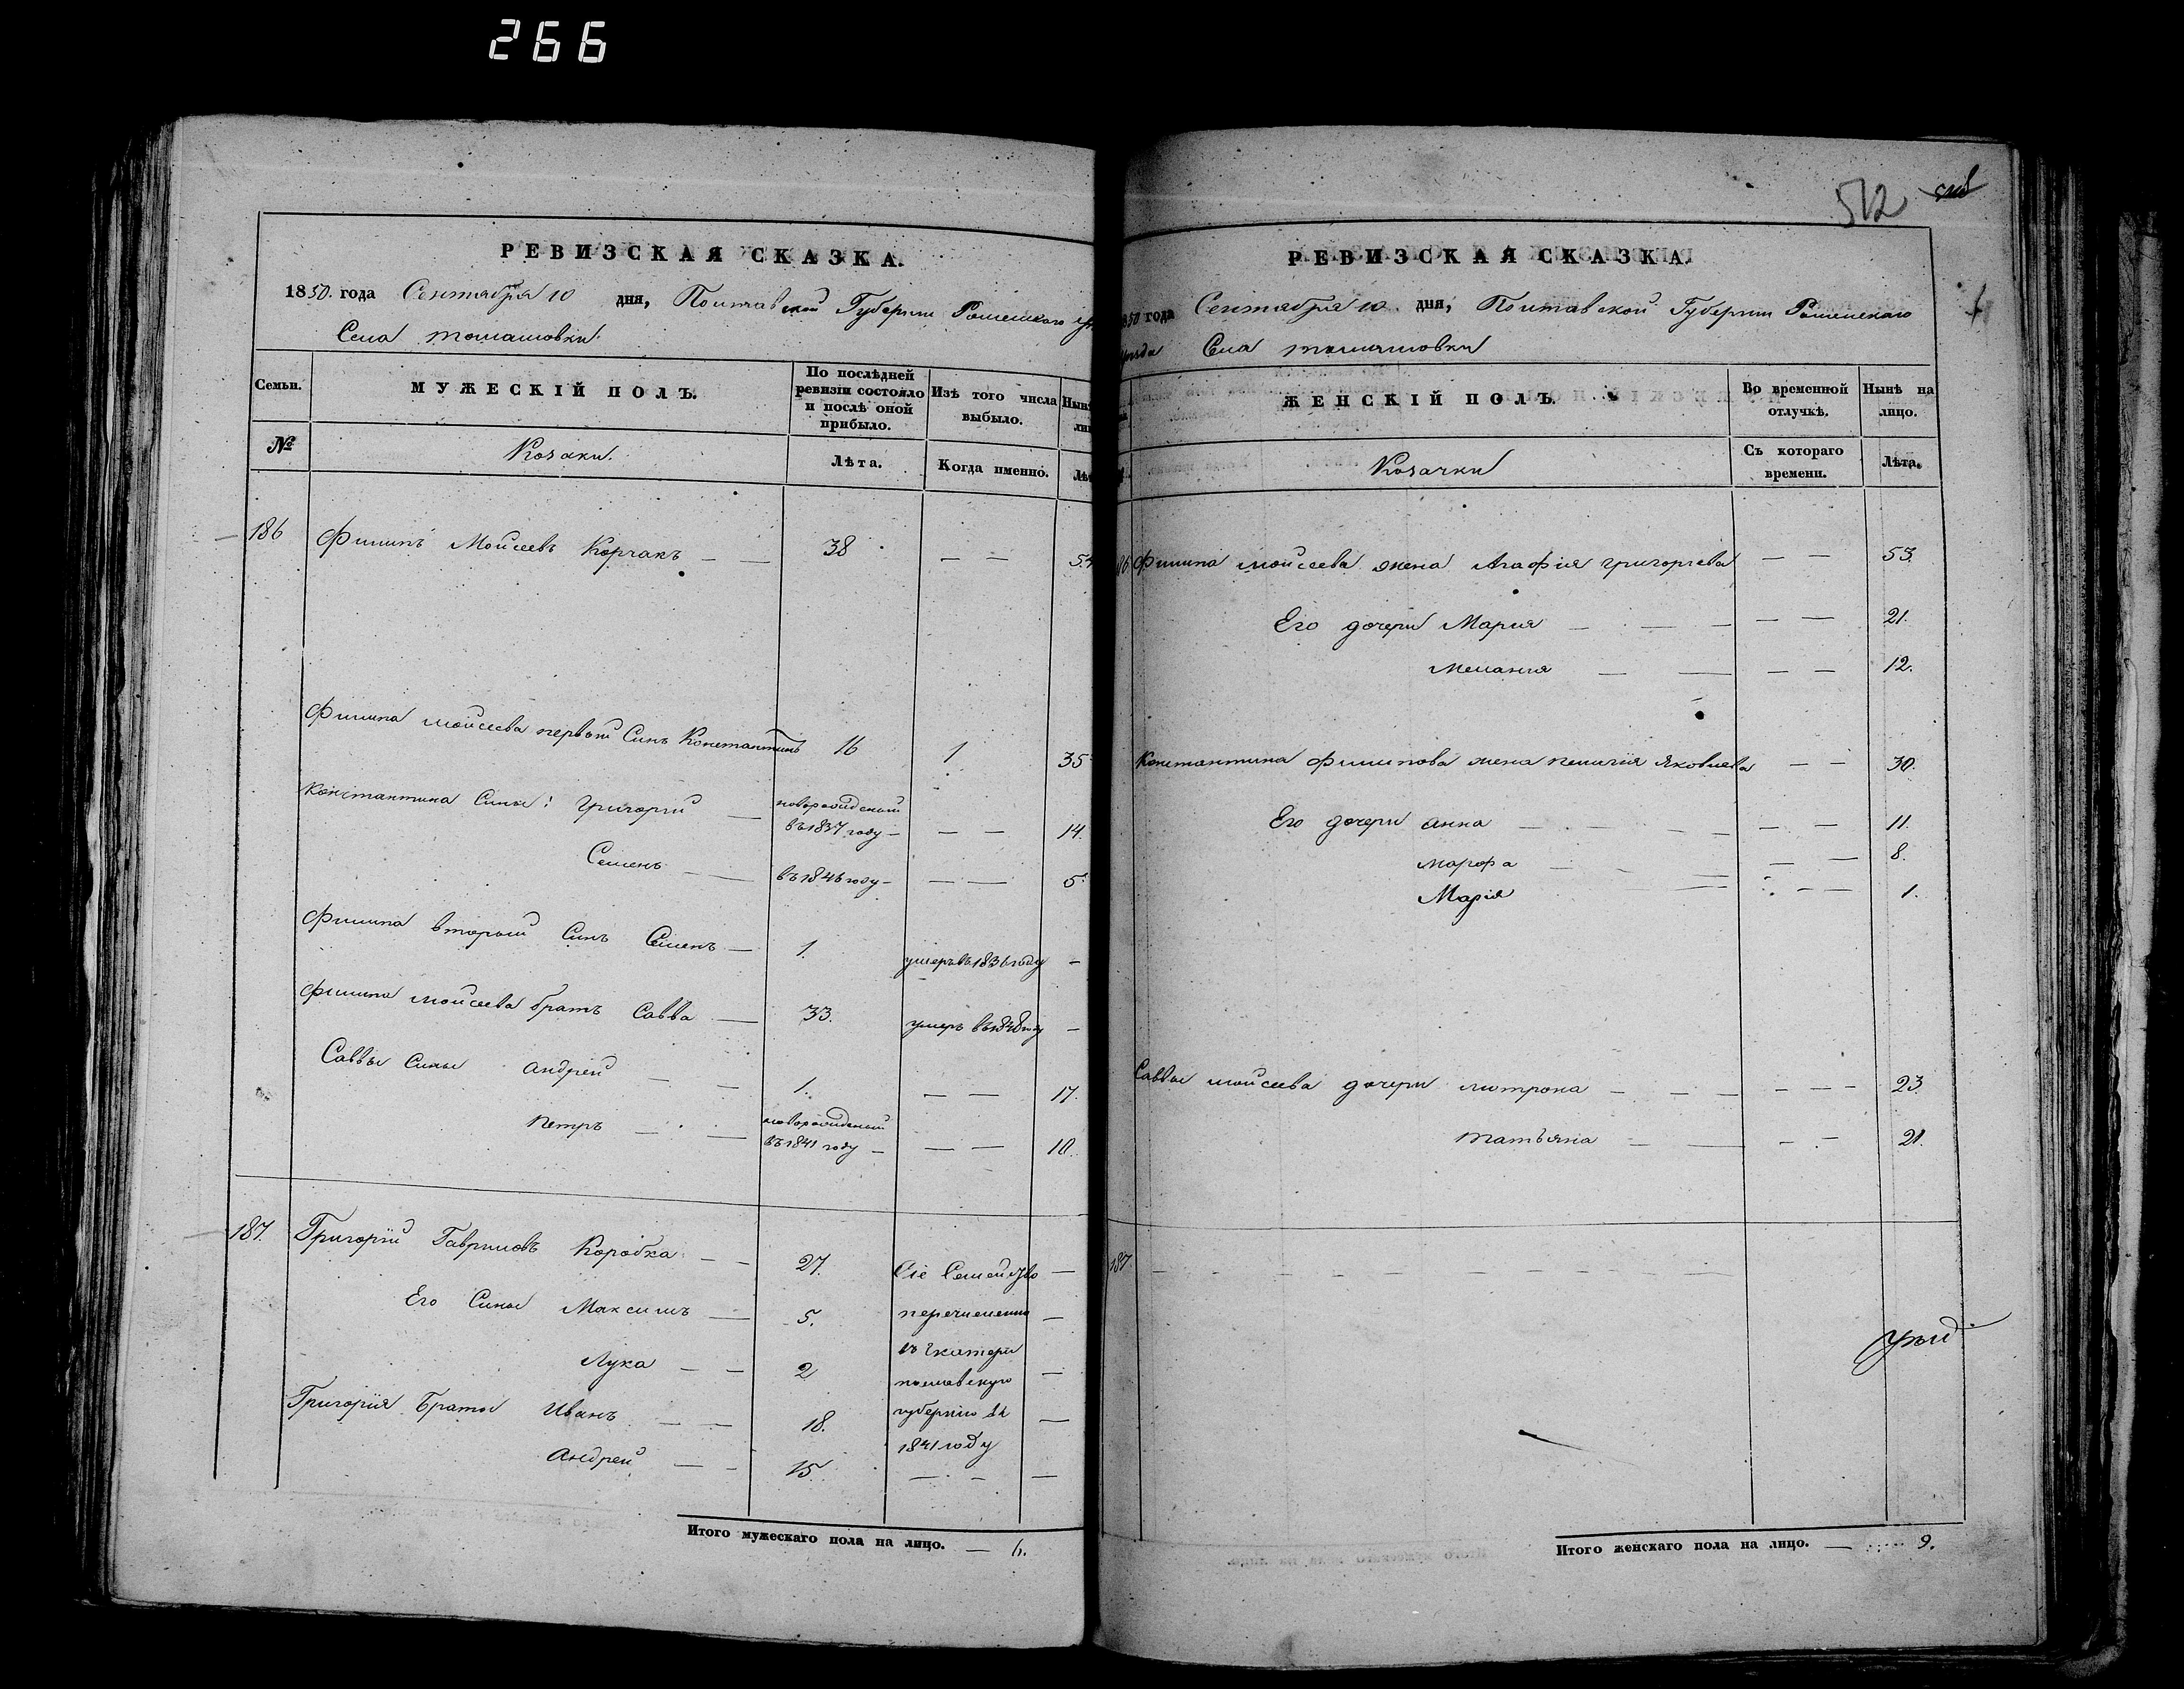 266
РЕВИЗСКАЯ СКАЗКА.
1850. года Сентября 10 дня, Полтавской Губернии Роменского
Села Томашовки.
Семьи.
МУЖЕСКІЙ ПОЛЪ.
По послѣдней ревизіи состояло и послѣ оной прибыло.
Изъ того числа выбыло.
№
Козаки.
Лѣта.
Когда именно.
186 Филипъ Мойсеевъ Корчакъ — — 38 — — 54
Филипа Мойсеева первый Синъ Константинъ 16 1 35
Константина Сины: Григорій — новорожденый
въ 1837 году — — — 14.
Семенъ — — въ 1846 году — — — 5.
Филипа вторый Синъ Семенъ — 1. умеръ въ 1836 году —
Филипа Мойсеева братъ Савва — 33. умеръ въ 1848 году —
Саввы Сины Андрей — — 1. — — 17.
Петръ — — новорожденый
въ 1841 году — — — 10.
187. Григорій Гавриловъ Коробка — — 27. Сіе Семейство —
Его Сины Максимъ — 5. перечислено —
Лука — — 2 въ Екатери
нославскую —
Григорія Браты Иванъ — — 18. губернію въ —
1841 году
Андрей — — 15. — — —
Итого мужескаго пола на лицо. — 6.
512
РЕВИЗСКАЯ СКАЗКА.
1850 года Сентября 10 дня, Полтавской Губернии Роменскаго
уѣзда Села Томашовки
ЖЕНСКІЙ ПОЛЪ.
Во временной отлучкѣ.
Нынѣ на лицо.
Козачки
Съ котораго времени.
Лѣта.
186 Филипа Мойсеева жена Агафія Григорьева — — 53.
Его дочери Мария — — — — — 21.
Меланія — — — — 12.
Константина Филипова жена Пелагія Яковлева — — 30.
Его дочери Анна — — — — — — 11.
Марфа — — — — 8.
Марія — — — 1.
Саввы Мойсеева дочери Мотрона — — — — — — 23.
Татьяна — — — — 21.
187. — — — — — — — — —
Итого женскаго пола на лицо. — 9.